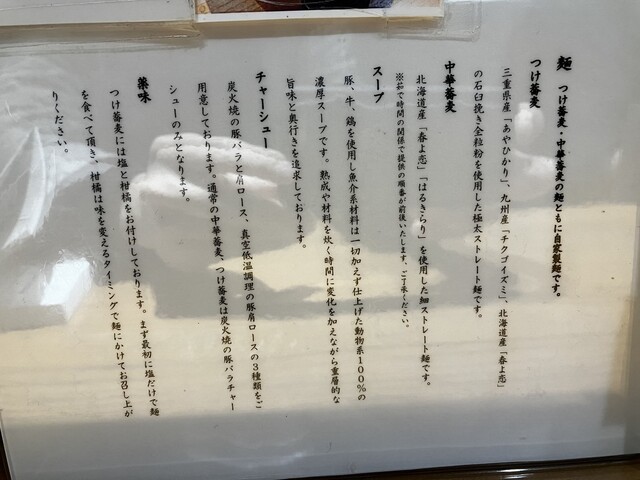 麺　つけ蕎麦・中華蕎麦の麺ともに自家製麺です。
つけ蕎麦
三重県産「あやひかり」、九州産「チクゴイズミ」、北海道産「春よ恋」
の石臼挽き全粒粉を使用した極太ストレート麺です。
中華蕎麦
北海道産「春よ恋」「はるきらり」を使用した細ストレート麺です。
※茹で時間の関係で提供の順番が前後いたします、ご了承ください。
スープ
豚、牛、鶏を使用し魚介系材料は一切加えず仕上げた動物系100%の
濃厚スープです。熟成や材料を炊く時間に変化を加えながら重層的な
旨味と奥行きを追求しております。
チャーシュー
炭火焼の豚バラと肩ロース、真空低温調理の豚肩ロースの3種類をご
用意しております。通常の中華蕎麦、つけ蕎麦は炭火焼の豚バラチャー
シューのみとなります。
薬味
つけ蕎麦には塩と柑橘をお付けしております。まず最初に塩だけで麺
を食べて頂き、柑橘は味を変えるタイミングで麺にかけてお召し上が
りください。